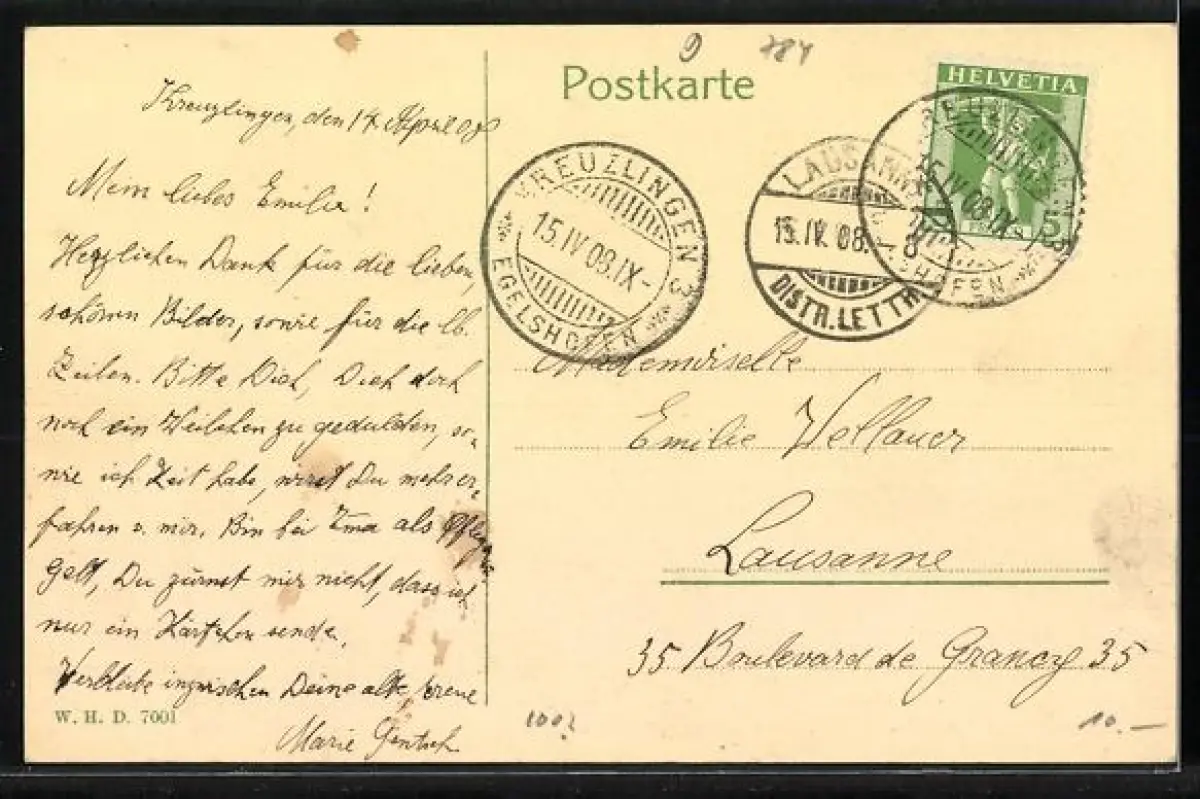 Kreuzlingen, den 14. April 08
Mein liebes Emilie!
Herzlichen Dank für die lieben,
schönen Bilder, sowie für die lb.
Zeilen. Bitte Dich, Dich doch
noch ein Weilchen zu gedulden, so-
wie ich Zeit habe, wirst Du mehr er-
fahren v. mir. Bin bei Ema als
Gelt, Du zürnst mir nicht, dass ich
nur ein Kärtchen sende.
Verbleibe inzwischen Deine alte, treue
Marie Gentsch
W. H. D. 7001
9 784
Postkarte
HELVETIA
5
KREUZLINGEN 3
15.IV 08.IX-
EGELSHOFEN
LAUSANNE
15.IV. 08.-8
DISTR. LETTR.
15.IV 08.IX-
Mademoiselle
Emilie Wellauer
Lausanne
35 Boulevard de Grancy 35
10.-